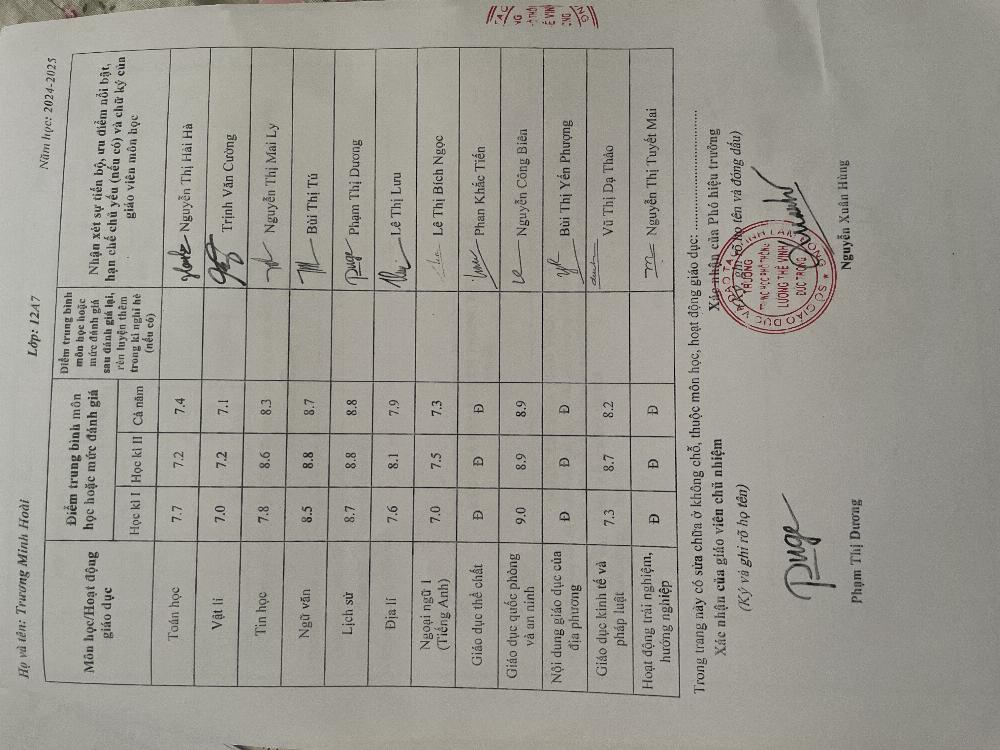 Họ và tên: Trương Minh Hoài Lớp: 12A7 Năm học: 2024-2025
Môn học/Hoạt động giáo dục
Điểm trung bình môn học hoặc mức đánh giá
Điểm trung bình môn học hoặc mức đánh giá sau đánh giá lại, rèn luyện thêm trong kì nghỉ hè (nếu có)
Nhận xét sự tiến bộ, ưu điểm nổi bật, hạn chế chủ yếu (nếu có) và chữ ký của giáo viên môn học
Học kì I Học kì II Cả năm
Toán học 7.7 7.2 7.4 Nguyễn Thị Hải Hà
Vật lí 7.0 7.2 7.1 Trịnh Văn Cường
Tin học 7.8 8.6 8.3 Nguyễn Thị Mai Ly
Ngữ văn 8.5 8.8 8.7 Bùi Thị Tú
Lịch sử 8.7 8.8 8.8 Phạm Thị Dương
Địa lí 7.6 8.1 7.9 Lê Thị Lưu
Ngoại ngữ 1 (Tiếng Anh) 7.0 7.5 7.3 Lê Thị Bích Ngọc
Giáo dục thể chất Đ Đ Đ Phan Khắc Tiến
Giáo dục quốc phòng và an ninh 9.0 8.9 8.9 Nguyễn Công Biên
Nội dung giáo dục của địa phương Đ Đ Đ Bùi Thị Yến Phượng
Giáo dục kinh tế và pháp luật 7.3 8.7 8.2 Vũ Thị Dạ Thảo
Hoạt động trải nghiệm, hướng nghiệp Đ Đ Đ Nguyễn Thị Tuyết Mai
Trong trang này có sửa chữa ở không chỗ, thuộc môn học, hoạt động giáo dục: ........................
Xác nhận của giáo viên chủ nhiệm
(Ký và ghi rõ họ tên)
Phạm Thị Dương
Xác nhận của Phó hiệu trưởng
(Ký, ghi rõ họ tên và đóng dấu)
TRƯỜNG
TRUNG HỌC PHỔ THÔNG
LƯƠNG THẾ VINH
ĐỨC TRỌNG
SỞ GIÁO DỤC VÀ ĐÀO TẠO TỈNH LÂM ĐỒNG
Nguyễn Xuân Hùng